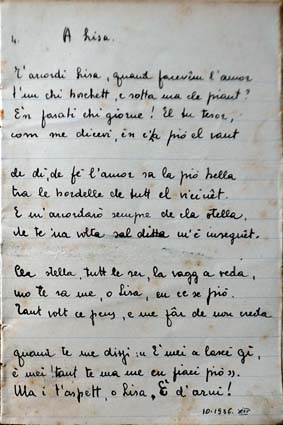 4. A Lisa.
T'arcordi Lisa, quand facevim l'amor
t'un chi boschett, e sotta ma cle piant?
E'n pasati chi giorne! El tu tesor,
com me dicevi, en c'fa pió el vant
de dì, de fè l'amor sa la pió bella
tra le bordelle de tutt el vicinèt.
E m'arcordarò sempre de cla stella,
che te 'na volta sol ditta m'è insegnèt.
Cla stella, tutt le ser, la vagg a veda,
mo te sa me, o Lisa, en ce se' pió.
Tant volt ce pens, e me fâr de non creda
quand te me disgi: « È mei a lascè gì,
è mei! tant te ma me en piaci pió ».
Ma i t'aspett, o Lisa, E d'arnì!
10.1936. XIV